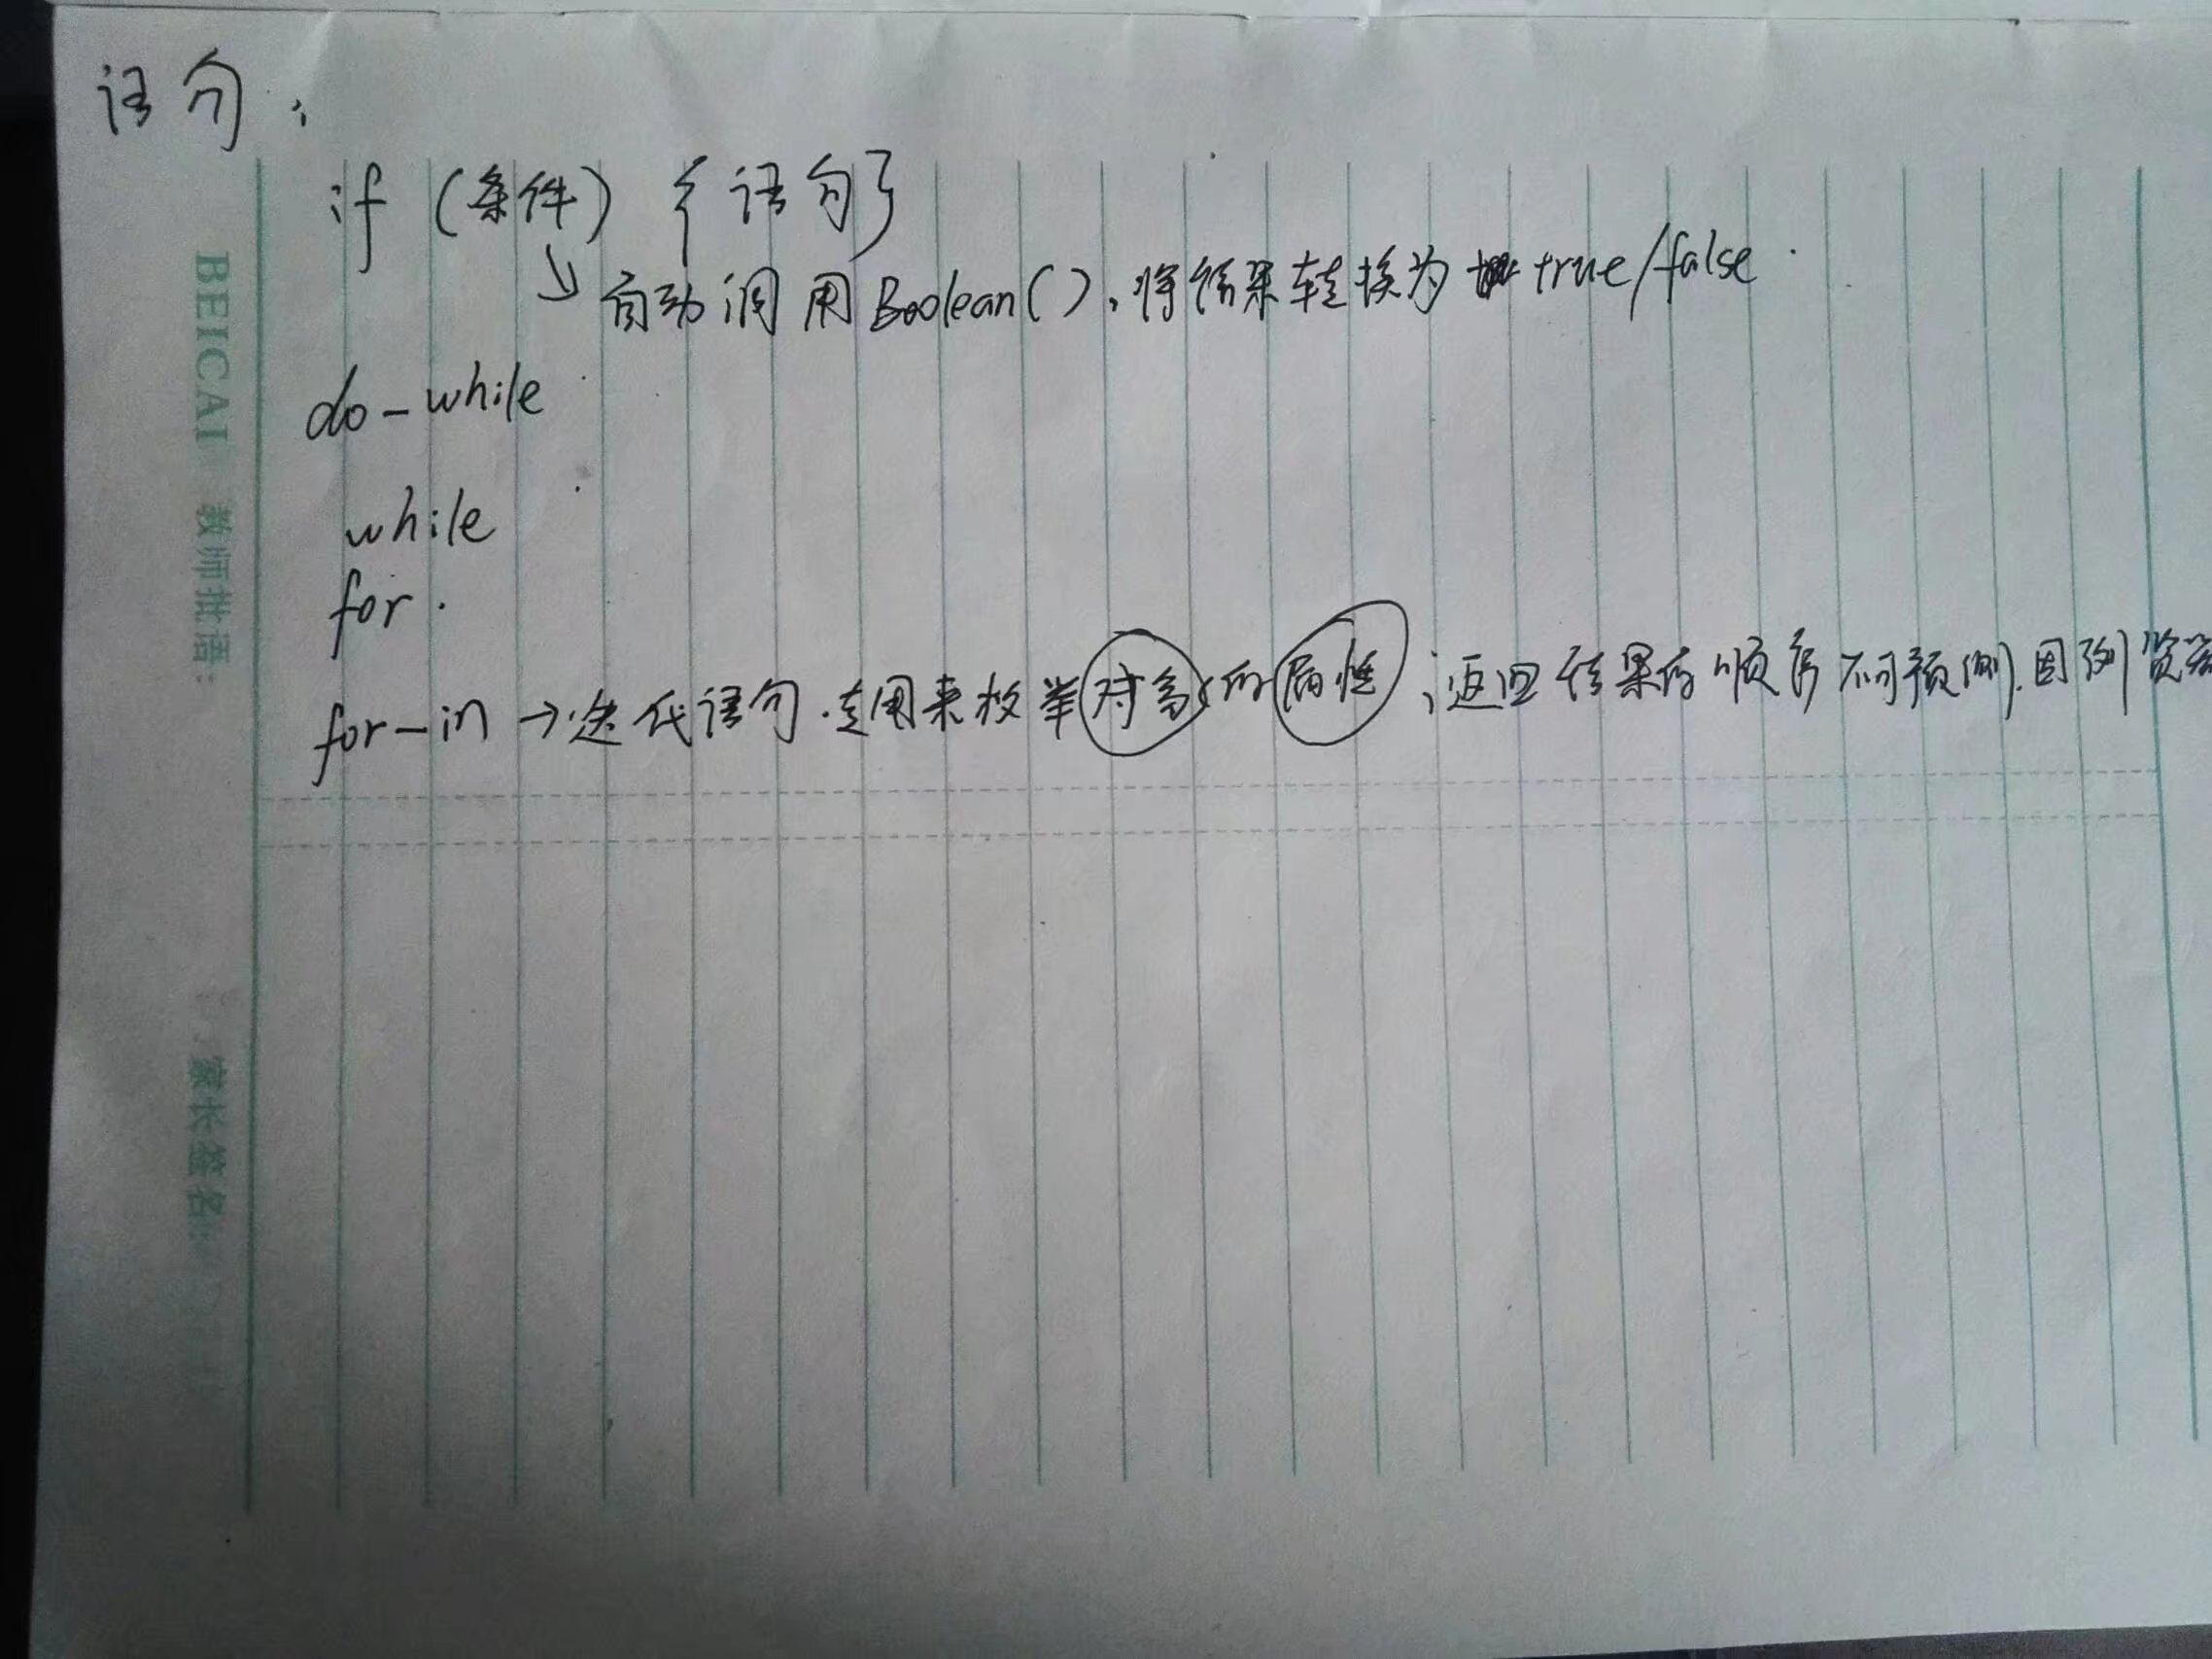 语句：
if (条件) {语句}
↘ 自动调用Boolean()，将结果转换为 true/false.
do-while
while
for.
for-in → 迭代语句.专用来枚举对象的属性;返回结果的顺序不可预测.因浏览器
BEICAI 教师批语:
家长签名